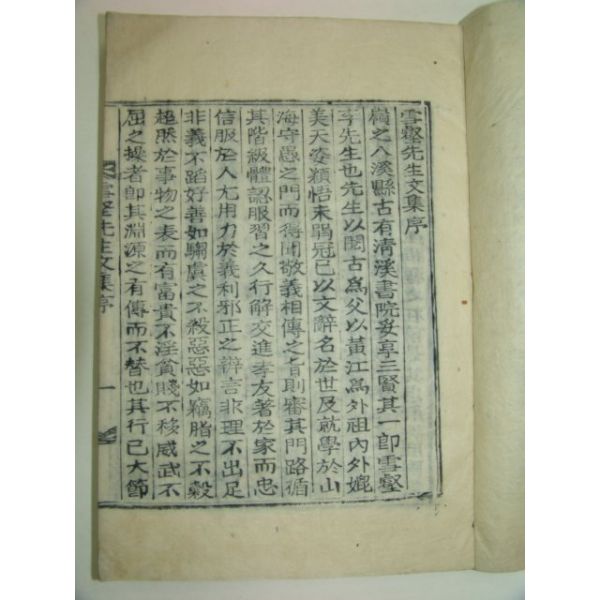 雪壑先生文集序
嶺之八溪縣古有淸溪書院妥享三賢其一卽雪壑
李先生也先生以閣古爲父以黃江爲外祖內外媲
美天姿穎悟未弱冠已以文辭名於世及就學於山
海守愚之門而得聞敬義相傳之旨則審其門路循
其階級體認服習之久行解交進孝友著於家而忠
信服於人尤用力於義利邪正之辨言非理不出足
非義不蹈好善如騶虞之不殺惡惡如竊脂之不糓
超然於事物之表而有富貴不淫貧賤不移威武不
屈之操者卽其淵源之有傳而不替也其行己大節
雪壑先生文集序
一